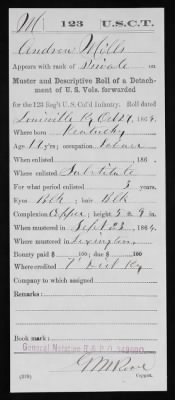 M 123 U.S.C.T.
Andrew Mills
Appears with rank of Private on
Muster and Descriptive Roll of a Detach-
ment of U. S. Vols. forwarded
for the 123 Reg't U. S. Col'd Infantry. Roll dated
Louisville Ky Oct 27, 1864.
Where born Kentucky
Age y'rs; occupation Laborer
When enlisted , 186 .
Where enlisted Substitute
For what period enlisted 3 years.
Eyes Blk ; hair Blk
Complexion Copper; height 5 ft. 9 in.
When mustered in Sept 23, 1864.
Where mustered in Lexington
Bounty paid $ 100; due $ 100
Where credited 7" Dist Ky
Company to which assigned
Remarks:
Book mark:
General Notation R & P O
(339) Copyist.